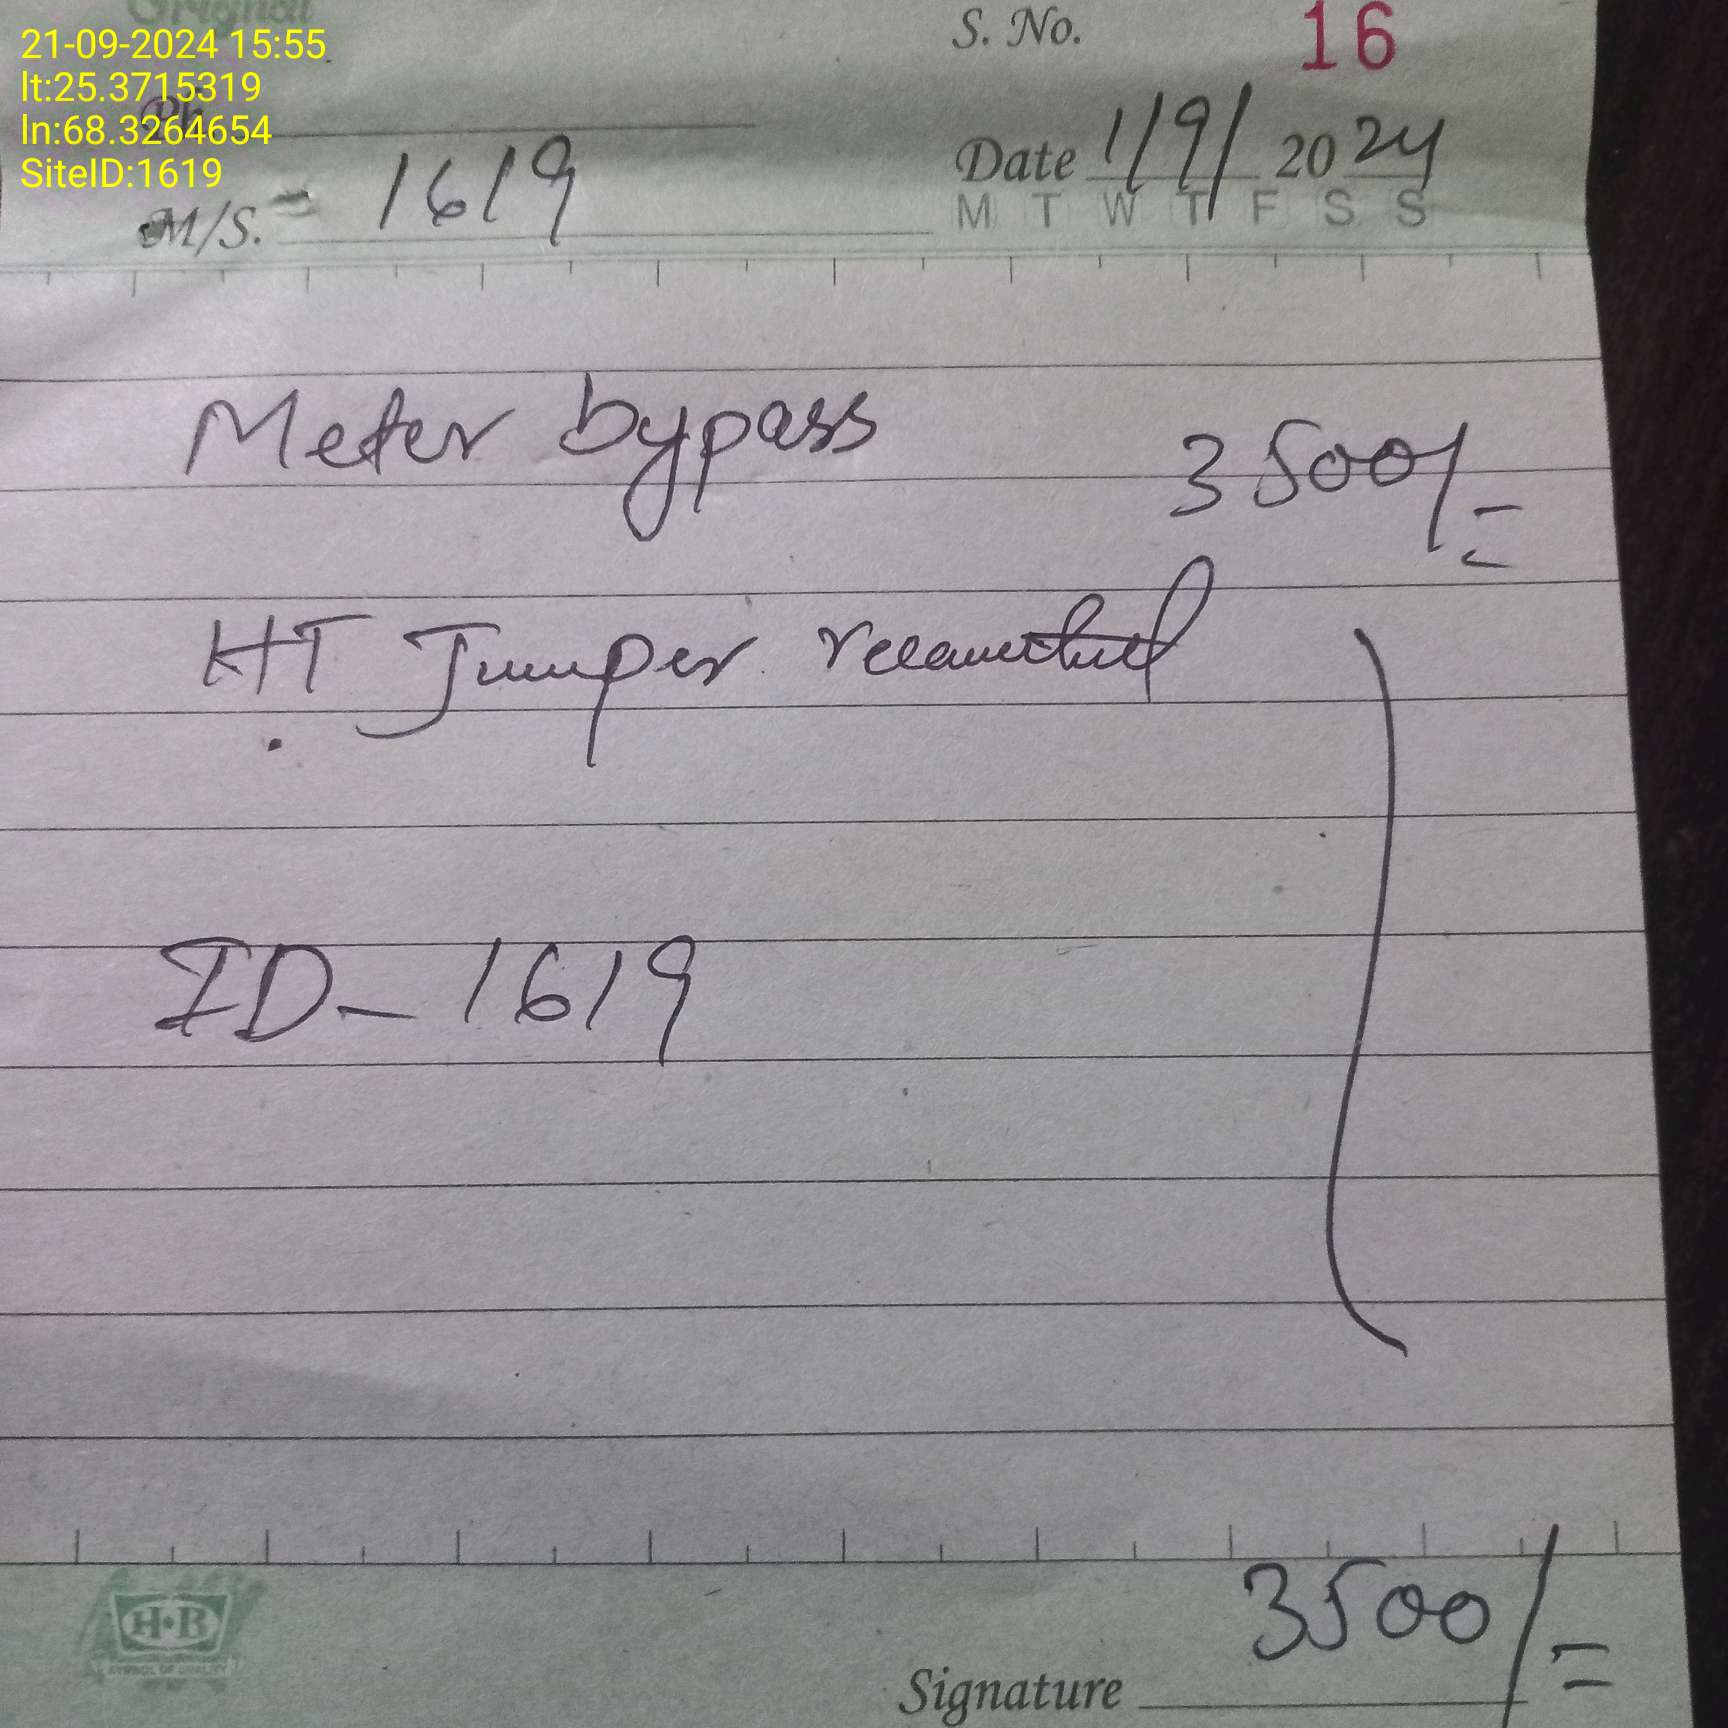 Original
21-09-2024 15:55
lt:25.3715319
ln:68.3264654
SiteID:1619
S. No. 16
Ph.
Date 1/9/ 2024
M T W T F S S
M/S. = 1619
Meter bypass 3500/=
HT Jumper reconnected
ID - 1619
H·R
SYMBOL OF QUALITY
3500/=
Signature